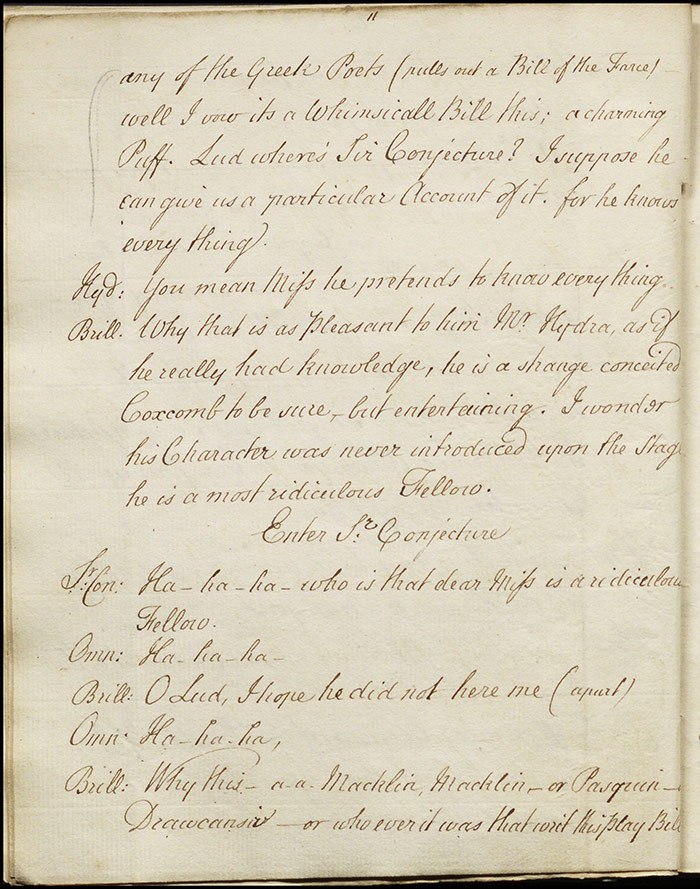 11
any of the Greek Poets (pulls out a Bill of the Farce)
well I vow its a Whimsicall Bill this; a charming
Puff. Lud where's Sir Conjecture? I suppose he
can give us a particular Account of it. for he knows
every thing.
Hyd: You mean Miſs he pretends to know every thing.
Brill. Why that is as pleasant to him Mr. Hydra, as if
he really had knowledge, he is a strange conceited
Coxcomb to be sure, - but entertaining. I wonder
his Character was never introduced upon the Stage
he is a most ridiculous Fellow.
Enter Sr. Conjecture
Sr. Con: Ha - ha - ha - who is that dear Miſs is a ridiculou
Fellow.
Omn: Ha - ha - ha -
Brill: O Lud, I hope he did not here me (apart)
Omn: Ha - ha - ha,
Brill: Why this - a - a - Macklin, Macklin, - or Pasquin -
Drawcansir - or who ever it was that writ this play Bill